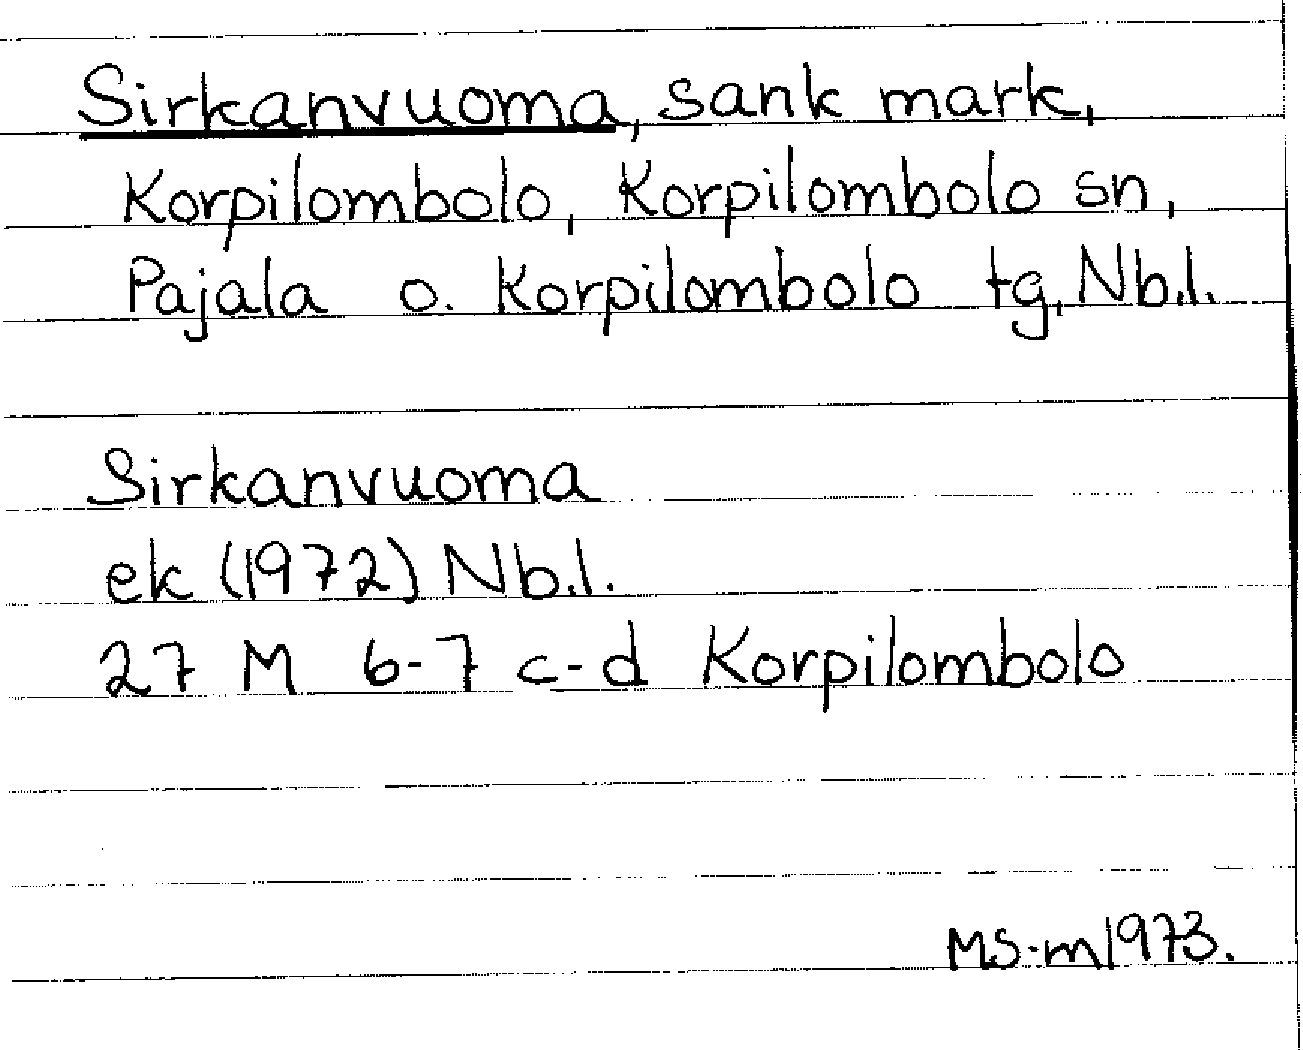 Sirkanvuoma, sank mark,
Korpilombolo, Korpilombolo sn,
Pajala o. Korpilombolo tg, Nb.l.
Sirkanvuoma
ek (1972) Nb.l.
27 M 6-7 c-d Korpilombolo
MS-m 1973.